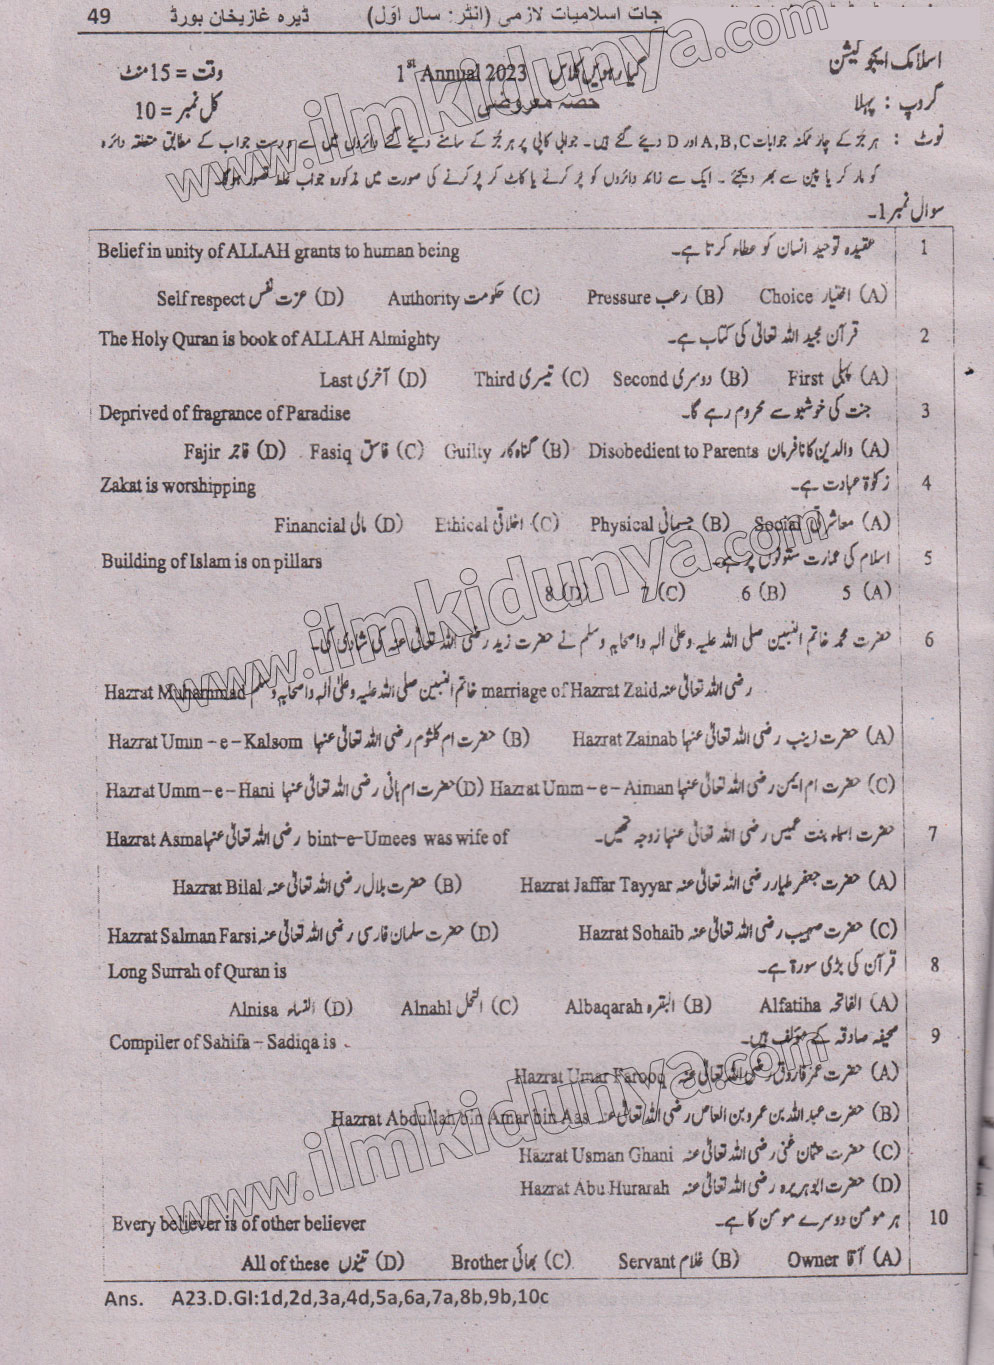 جات اسلامیات لازمی (انٹر: سال اوّل) ڈیرہ غازیخان بورڈ 49
اسلامک ایجوکیشن گیارہویں کلاس 1st Annual 2023 وقت = 15 منٹ
گروپ : پہلا حصہ معروضی کل نمبر = 10
نوٹ : ہر جُز کے چار ممکنہ جوابات A,B,C اور D دیئے گئے ہیں۔ جوابی کاپی پر ہر جُز کے سامنے دیئے گئے دائروں میں سے درست جواب کے مطابق متعلقہ دائرہ
کو مارکر یا پین سے بھر دیجئے ۔ ایک سے زائد دائروں کو پُر کرنے یا کاٹ کر پُر کرنے کی صورت میں مذکورہ جواب غلط تصور ہوگا۔
سوال نمبر 1۔
1 عقیدہ توحید انسان کو عطاء کرتا ہے۔ Belief in unity of ALLAH grants to human being
(A) اختیار Choice (B) رعب Pressure (C) حکومت Authority (D) عزت نفس Self respect
2 قرآن مجید اللہ تعالیٰ کی کتاب ہے۔ The Holy Quran is book of ALLAH Almighty
(A) پہلی First (B) دوسری Second (C) تیسری Third (D) آخری Last
3 جنت کی خوشبو سے محروم رہے گا۔ Deprived of fragrance of Paradise
(A) والدین کا نافرمان Disobedient to Parents (B) گناہ کار Guilty (C) فاسق Fasiq (D) فاجر Fajir
4 زکوٰۃ عبادت ہے۔ Zakat is worshipping
(A) معاشرتی Social (B) جسمانی Physical (C) اخلاقی Ethical (D) مالی Financial
5 اسلام کی عمارت ستونوں پر ہے۔ Building of Islam is on pillars
(A) 5 (B) 6 (C) 7 (D) 8
6 حضرت محمد خاتم النبیین صلی اللہ علیہ وعلیٰ آلہ واصحابہ وسلم نے حضرت زید رضی اللہ تعالیٰ عنہ کی شادی کی۔
Hazrat Muhammad خاتم النبیین صلی اللہ علیہ وعلیٰ آلہ واصحابہ وسلم marriage of Hazrat Zaid رضی اللہ تعالیٰ عنہ
(A) حضرت زینب رضی اللہ تعالیٰ عنہا Hazrat Zainab (B) حضرت ام کلثوم رضی اللہ تعالیٰ عنہا Hazrat Umm - e - Kalsom
(C) حضرت ام ایمن رضی اللہ تعالیٰ عنہا Hazrat Umm - e - Aiman (D) حضرت ام ہانی رضی اللہ تعالیٰ عنہا Hazrat Umm - e - Hani
7 حضرت اسماء بنت عمیس رضی اللہ تعالیٰ عنہا زوجہ تھیں۔ Hazrat Asma رضی اللہ تعالیٰ عنہا bint-e-Umees was wife of
(A) حضرت جعفر طیار رضی اللہ تعالیٰ عنہ Hazrat Jaffar Tayyar (B) حضرت بلال رضی اللہ تعالیٰ عنہ Hazrat Bilal
(C) حضرت صہیب رضی اللہ تعالیٰ عنہ Hazrat Sohaib (D) حضرت سلمان فارسی رضی اللہ تعالیٰ عنہ Hazrat Salman Farsi
8 قرآن کی بڑی سورۃ ہے۔ Long Surrah of Quran is
(A) الفاتحہ Alfatiha (B) البقرہ Albaqarah (C) النحل Alnahl (D) النساء Alnisa
9 صحیفہ صادقہ کے مؤلف ہیں۔ Compiler of Sahifa - Sadiqa is
(A) حضرت عمر فاروق رضی اللہ تعالیٰ عنہ Hazrat Umar Farooq
(B) حضرت عبد اللہ بن عمرو بن العاص رضی اللہ تعالیٰ عنہ Hazrat Abdullah bin Amar bin Aas
(C) حضرت عثمان غنی رضی اللہ تعالیٰ عنہ Hazrat Usman Ghani
(D) حضرت ابوہریرہ رضی اللہ تعالیٰ عنہ Hazrat Abu Hurarah
10 ہر مومن دوسرے مومن کا ہے۔ Every believer is of other believer
(A) آقا Owner (B) غلام Servant (C) بھائی Brother (D) تینوں All of these
Ans. A23.D.GI:1d,2d,3a,4d,5a,6a,7a,8b,9b,10c
www.ilmkidunya.com
www.ilmkidunya.com
www.ilmkidunya.com